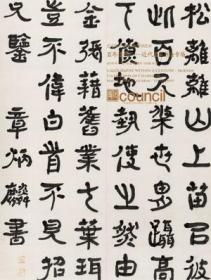 松離離山上苗㠯彼
此百尺條世冑躡高
下僚地埶使之然由
金張藉舊業七葉珥
豈不偉白首不見招
兄鑒 章炳麟書
council